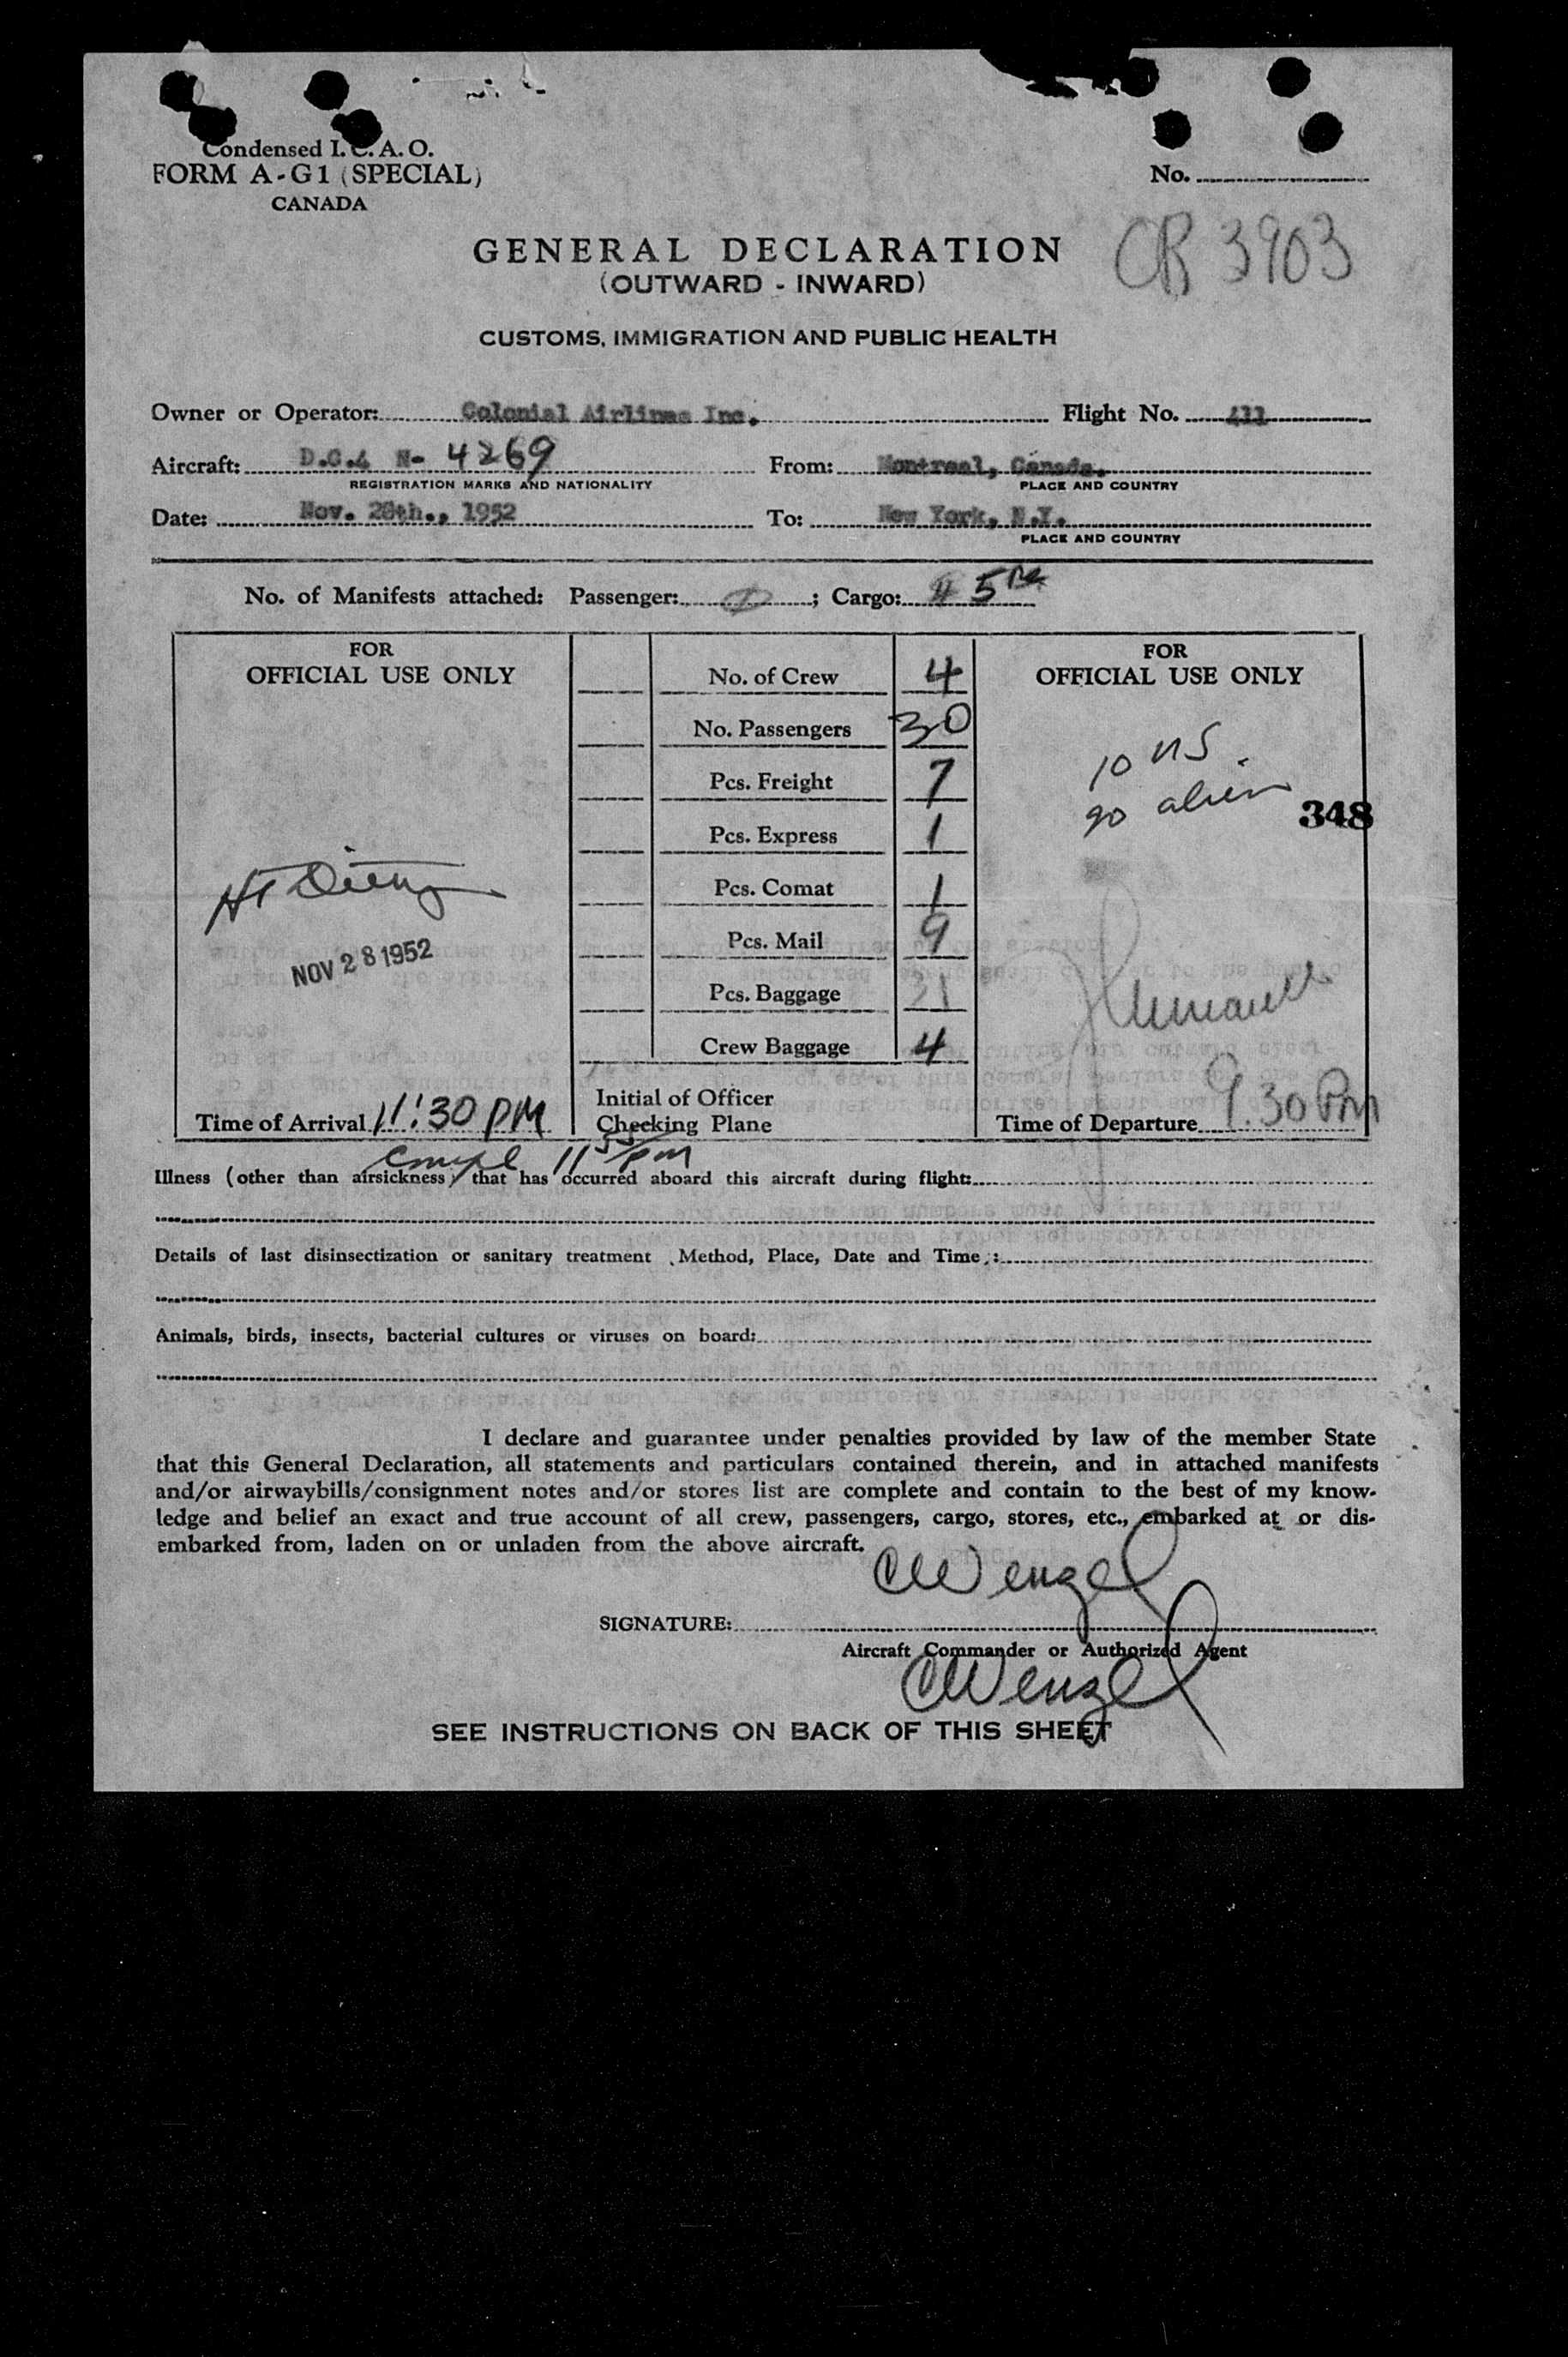 Condensed I.C.A.O.
FORM A-G1 (SPECIAL)
CANADA
No.
GENERAL DECLARATION
CR 3903
(OUTWARD - INWARD)
CUSTOMS, IMMIGRATION AND PUBLIC HEALTH
Owner or Operator: Colonial Airlines Inc. Flight No.
Aircraft: D.C.4 N- 4269 From: Montreal, Canada.
REGISTRATION MARKS AND NATIONALITY PLACE AND COUNTRY
Date: Nov. 28th., 1952 To: New York, N.Y.
PLACE AND COUNTRY
No. of Manifests attached: Passenger: ; Cargo: 5
FOR
OFFICIAL USE ONLY
NOV 28 1952
Time of Arrival 11:30 PM
compl 11 55/pm
No. of Crew 4
No. Passengers 30
Pcs. Freight 7
Pcs. Express 1
Pcs. Comat 1
Pcs. Mail 9
Pcs. Baggage 31
Crew Baggage 4
Initial of Officer
Checking Plane
FOR
OFFICIAL USE ONLY
10 US.
20 alien
348
Time of Departure 9.30 Pm
Illness (other than airsickness) that has occurred aboard this aircraft during flight:
Details of last disinsectization or sanitary treatment (Method, Place, Date and Time):
Animals, birds, insects, bacterial cultures or viruses on board:
I declare and guarantee under penalties provided by law of the member State
that this General Declaration, all statements and particulars contained therein, and in attached manifests
and/or airwaybills/consignment notes and/or stores list are complete and contain to the best of my know-
ledge and belief an exact and true account of all crew, passengers, cargo, stores, etc., embarked at or dis-
embarked from, laden on or unladen from the above aircraft.
CWenzel
SIGNATURE:
Aircraft Commander or Authorized Agent
CWenzel
SEE INSTRUCTIONS ON BACK OF THIS SHEET